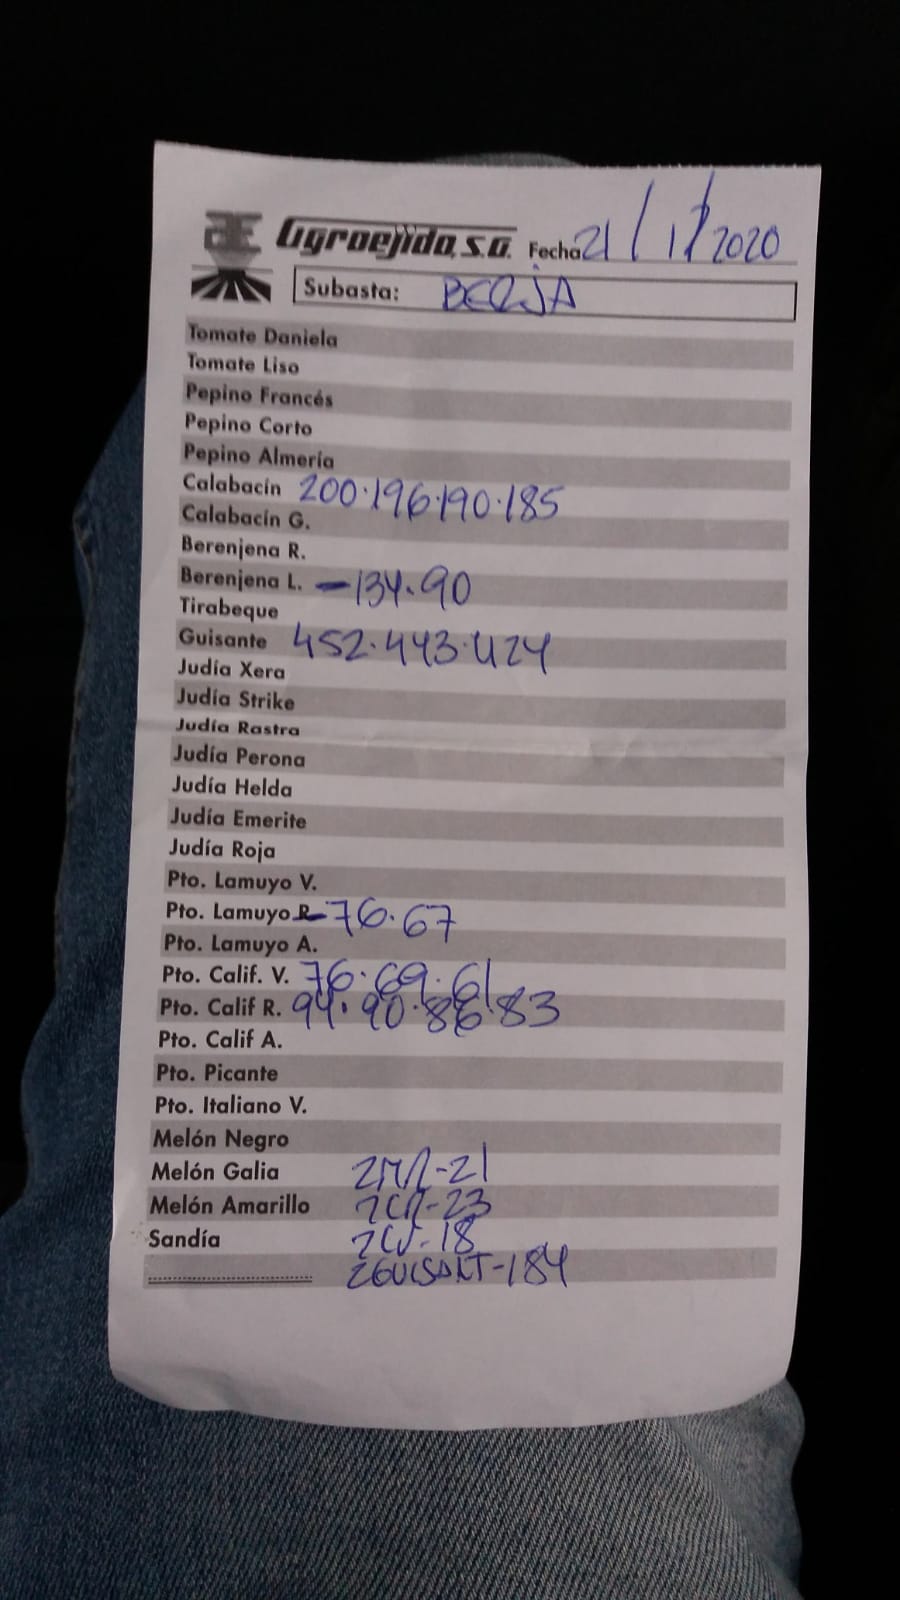 Agroejido, S.A. Fecha 21/1/2020
Subasta: BERJA
Tomate Daniela
Tomate Liso
Pepino Francés
Pepino Corto
Pepino Almería
Calabacín 200·196·190·185
Calabacín G.
Berenjena R.
Berenjena L. -134·90
Tirabeque
Guisante 452·443·424
Judía Xera
Judía Strike
Judía Rastra
Judía Perona
Judía Helda
Judía Emerite
Judía Roja
Pto. Lamuyo V.
Pto. Lamuyo R -76·67
Pto. Lamuyo A.
Pto. Calif. V. 76·69·61
Pto. Calif R. 94·90·86·83
Pto. Calif A.
Pto. Picante
Pto. Italiano V.
Melón Negro
Melón Galia 2MR-21
Melón Amarillo 2CR-23
Sandía 2CV-18
2GUISANT-184